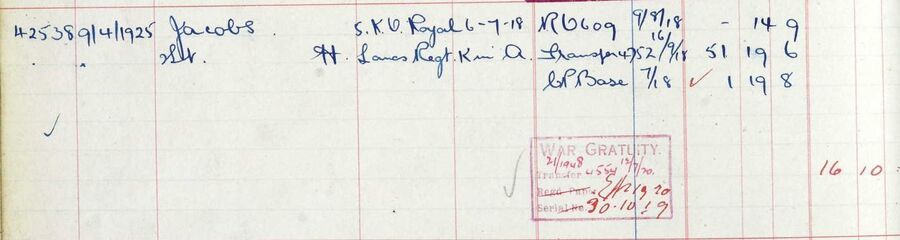 425389/4/1925 Jacobs S.K.V. Royal 6-7-18 RO 609 9/8/18 - 14 9
" " St. H. Lancs Regt. K in A. Transfer 4752 16/9/18 51 19 6
CP Base 7/18 ✓ 1 19 8
WAR GRATUITY.
21/1948 12/7/20.
Transfer 4554
Regd. 1920
Serial No. 30-10-19
16 10